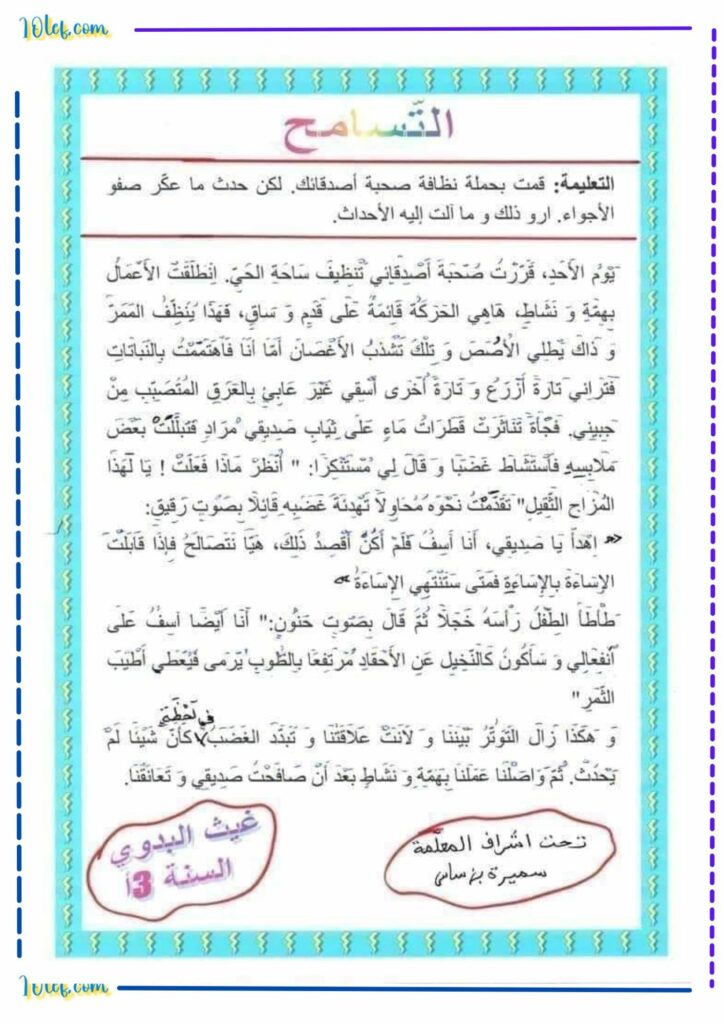 10lef.com
التّسامح
التعليمة: قمت بحملة نظافة صحبة أصدقائك. لكن حدث ما عكّر صفو
الأجواء. ارو ذلك و ما آلت إليه الأحداث.
يَوْمُ الأَحَدِ، قَرَّرْتُ صُحْبَةَ أَصْدِقَائِي تَنْظِيفَ سَاحَةِ الحَيِّ. اِنْطَلَقَتْ الأَعْمَالُ
بِهِمَّةٍ وَ نَشَاطٍ، هَاهِي الحَرَكَةُ قَائِمَةٌ عَلَى قَدَمٍ وَ سَاقٍ، فَهَذَا يُنَظِّفُ المَمَرَّ
وَ ذَاكَ يَطْلِي الأُصُصَ وَ تِلْكَ تُشَذِّبُ الأَغْصَانَ أَمَّا أَنَا فَاهْتَمَمْتُ بِالنَّبَاتَاتِ
فَتَرَانِي تَارَةً أَزْرَعُ وَ تَارَةً أُخْرَى أَسْقِي غَيْرَ عَابِئٍ بِالعَرَقِ المُتَصَبِّبِ مِنْ
جَبِينِي. فَجْأَةً تَنَاثَرَتْ قَطَرَاتُ مَاءٍ عَلَى ثِيَابِ صَدِيقِي مُرَادٍ فَتَبَلَّلَتْ بَعْضُ
مَلَابِسِهِ فَاسْتَشَاطَ غَضَبًا وَ قَالَ لِي مُسْتَنْكِرًا: " أُنْظُرْ مَاذَا فَعَلْتَ ! يَا لَهَذَا
المُزَاحِ الثَّقِيلِ" تَقَدَّمْتُ نَحْوَهُ مُحَاوِلًا تَهْدِئَةَ غَضَبِهِ قَائِلًا بِصَوْتٍ رَقِيقٍ:
« اِهْدَأْ يَا صَدِيقِي، أَنَا آسِفٌ فَلَمْ أَكُنْ أَقْصِدُ ذَلِكَ، هَيَّا نَتَصَالَحُ فَإِذَا قَابَلْتَ
الإِسَاءَةَ بِالإِسَاءَةِ فَمَتَى سَتَنْتَهِي الإِسَاءَةُ »
طَأْطَأَ الطِّفْلُ رَأْسَهُ خَجَلًا ثُمَّ قَالَ بِصَوْتٍ حَنُونٍ:" أَنَا أَيْضًا آسِفٌ عَلَى
اُنْفِعَالِي وَ سَأَكُونُ كَالنَّخِيلِ عَنِ الأَحْقَادِ مُرْتَفِعًا بِالطُّوبِ يُرْمَى فَيُعْطِي أَطْيَبَ
الثَّمَرِ "
وَ هَكَذَا زَالَ التَّوَتُّرُ بَيْنَنَا وَ لَانَتْ عَلَاقَتُنَا وَ تَبَدَّدَ الغَضَبُ في لَحْظَةٍ كَأَنَّ شَيْئًا لَمْ
يَحْدُثْ. ثُمَّ وَاصَلْنَا عَمَلَنَا بِهِمَّةٍ وَ نَشَاطٍ بَعْدَ أَنْ صَافَحْتُ صَدِيقِي وَ تَعَانَقْنَا.
تحت اشراف المعلّمة
سميرة
غيث البدوي
السنة 3أ
10lef.com